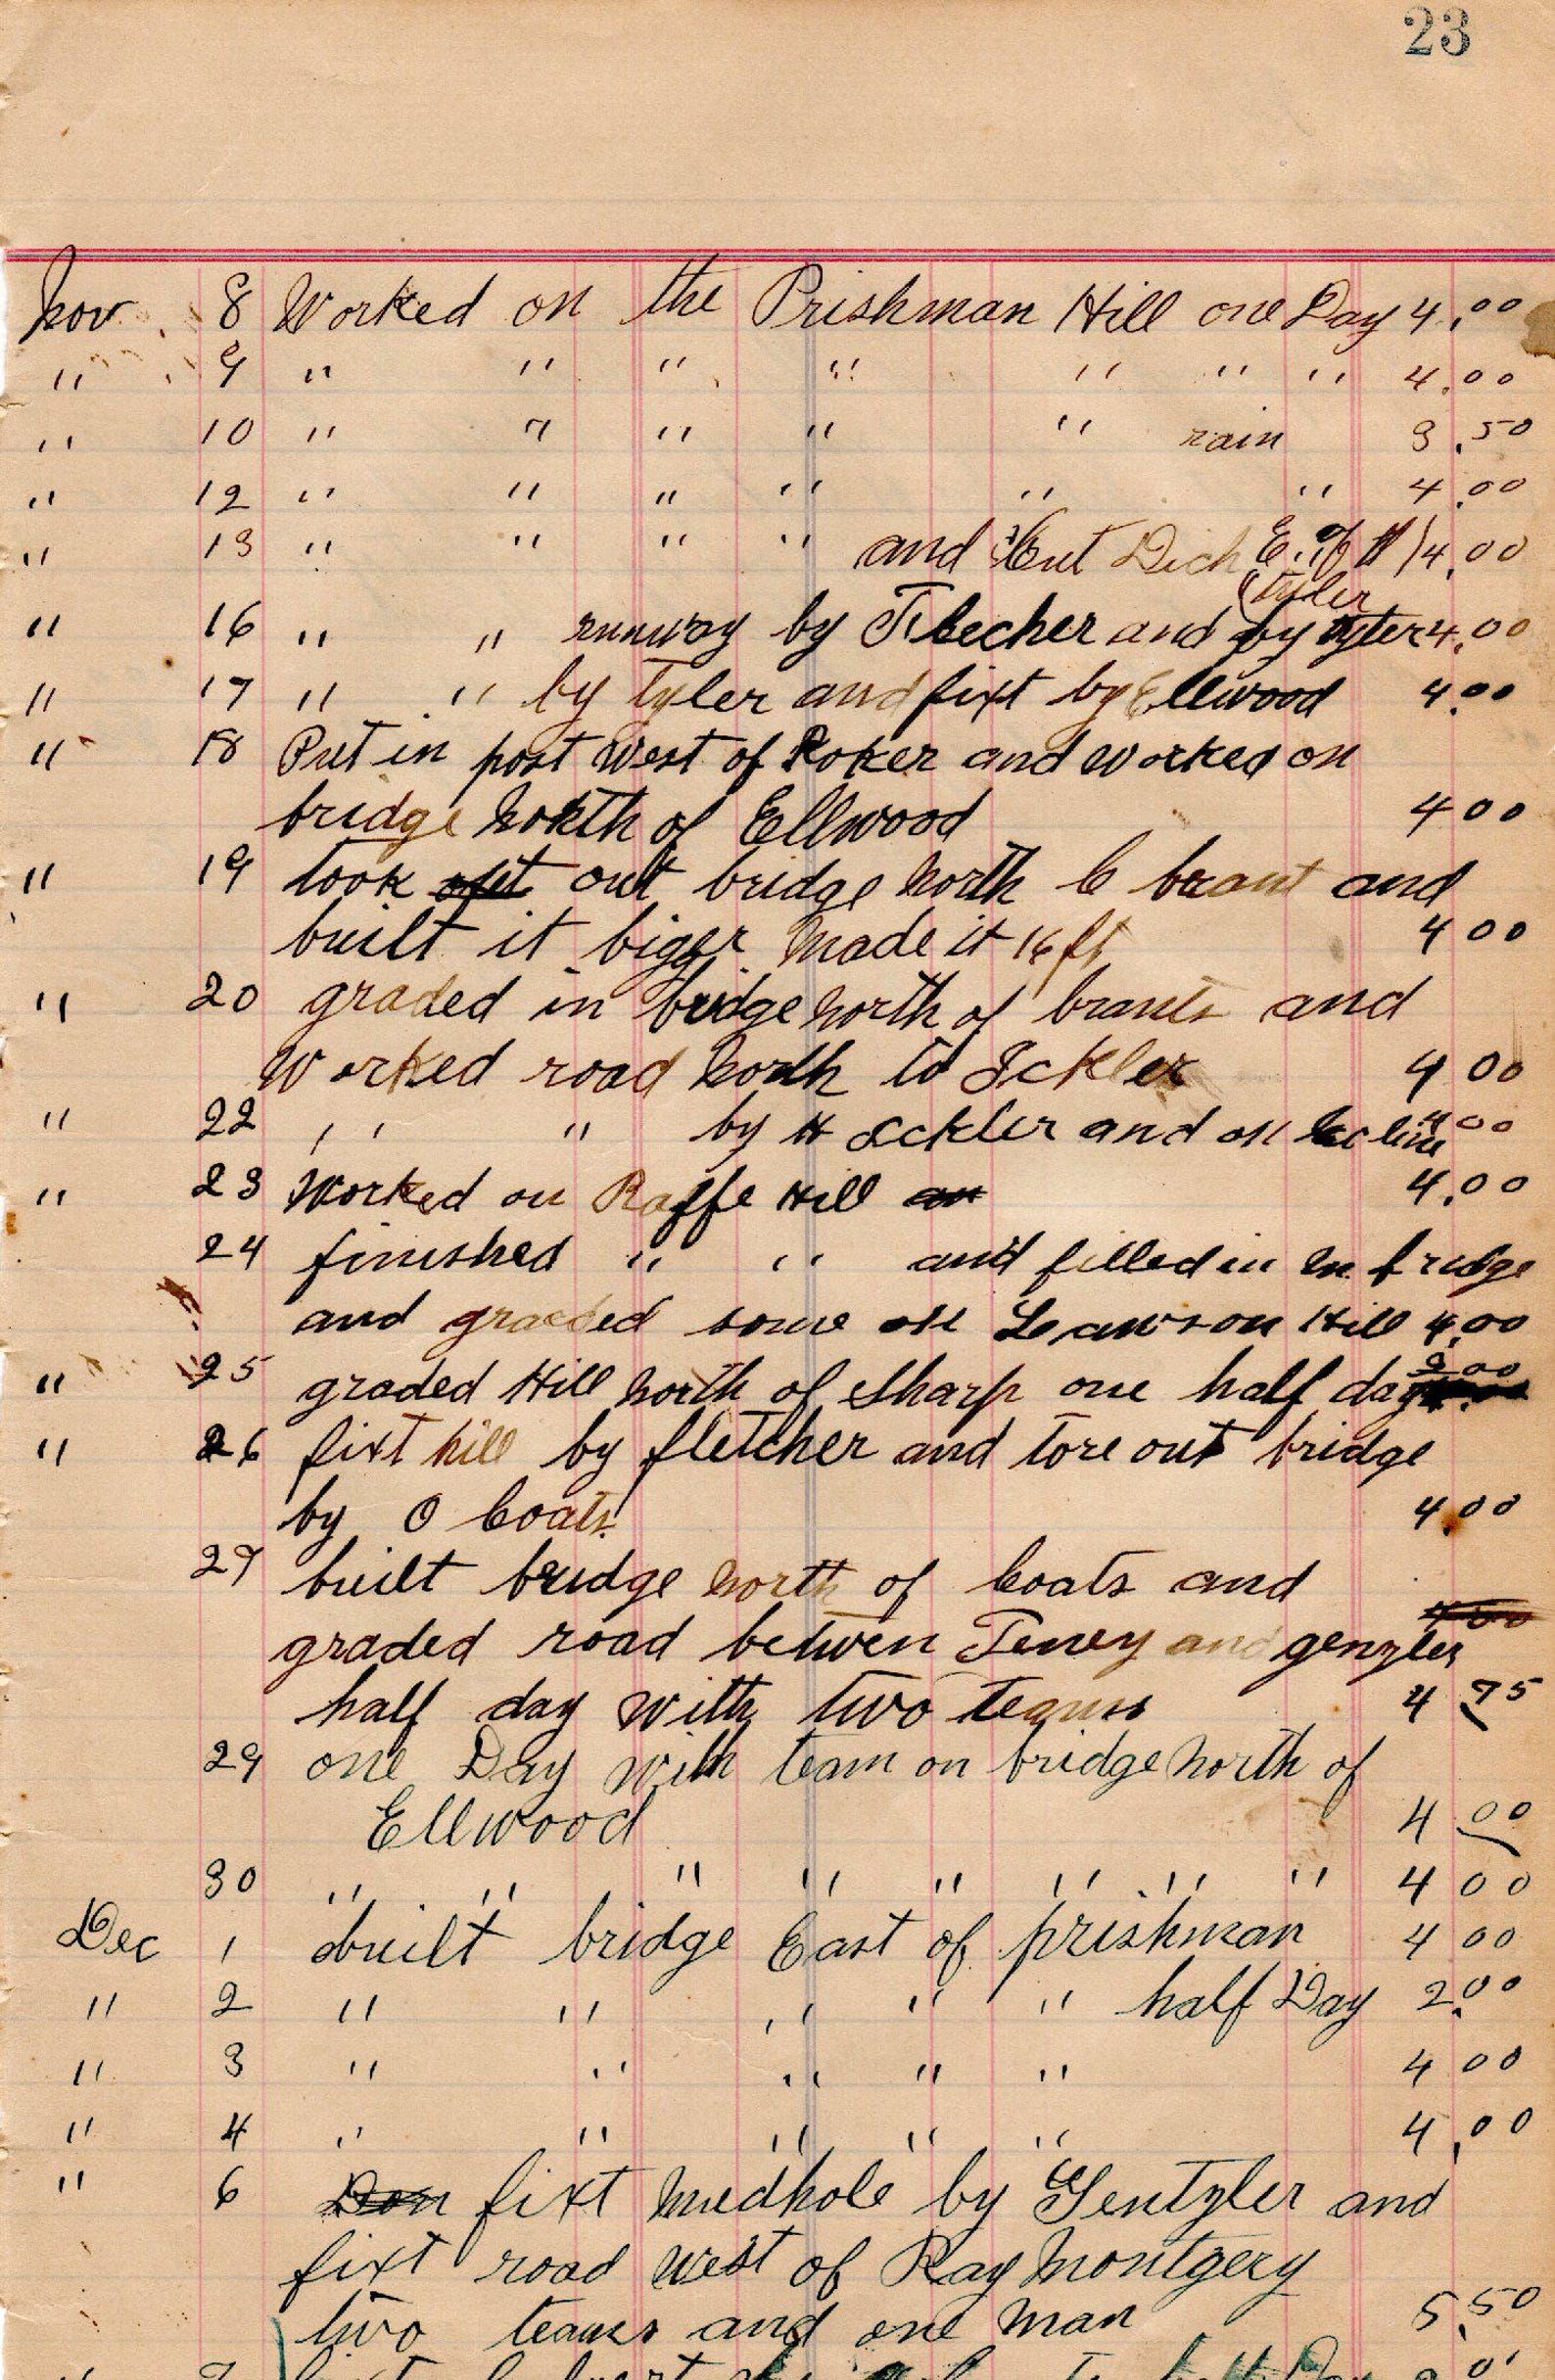 23
Nov 8 Worked on the Prishman Hill one Day 4.00
" 9 " " " " " " " 4.00
" 10 " " " " " rain 3.50
" 12 " " " " " " 4.00
" 13 " " " " and Cut Dich E. of 4.00
(Tyler
" 16 " " runway by Flecher and by 4.00
" 17 " " by Tyler and fixt by Ellwood 4.00
" 18 Put in post West of Roker and worked on
bridge North of Ellwood 4 00
" 19 took out bridge North C brant and
built it bigger Made it 16 ft 4 00
" 20 graded in bridge North of brants and
Worked road North to Ickler 4 00
" 22 " " by H Ickler and on line 4.00
" 23 Worked on Raffe Hill 4.00
24 finished " " and filled in bridge
and graded some on Leawson Hill 4.00
" 25 graded Hill North of Sharp one half day 2.00
" 26 fixt hill by fletcher and tore out bridge
by O Coats 4.00
27 built bridge North of Coats and
graded road betwen Teney and genzler 4 00
half day with two teams 4 75
29 one Day with team on bridge North of
Ellwood 4 00
30 " " " " " " " " 4 00
Dec 1 built bridge East of prishman 4 00
" 2 " " " " " half Day 2.00
" 3 " " " " " 4 00
" 4 " " " " " 4.00
" 6 Don fixt Mudhole by Gentzler and
fixt road West of Ray Montgery
two teams and one Man 5.50